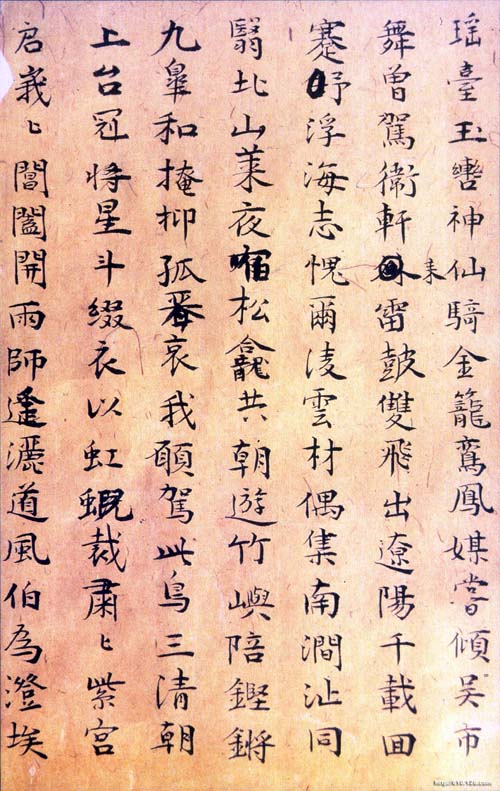 瑶臺玉轡神仙騎金籠鸞鳳媒嘗傾吴市
舞曾駕衛軒来雷鼓雙飛出遼陽千載回
蹇浮海志愧爾淩雲材偶集南澗沚同
翳北山萊夜宿松龕共朝遊竹嶼陪鏗鏘
九皋和掩抑孤哀我願駕此鳥三清朝
上台冠将星斗綴衣以虹蜺裁肅〻紫宫
启峩〻閶闔開雨師遙灑道風伯為澄埃